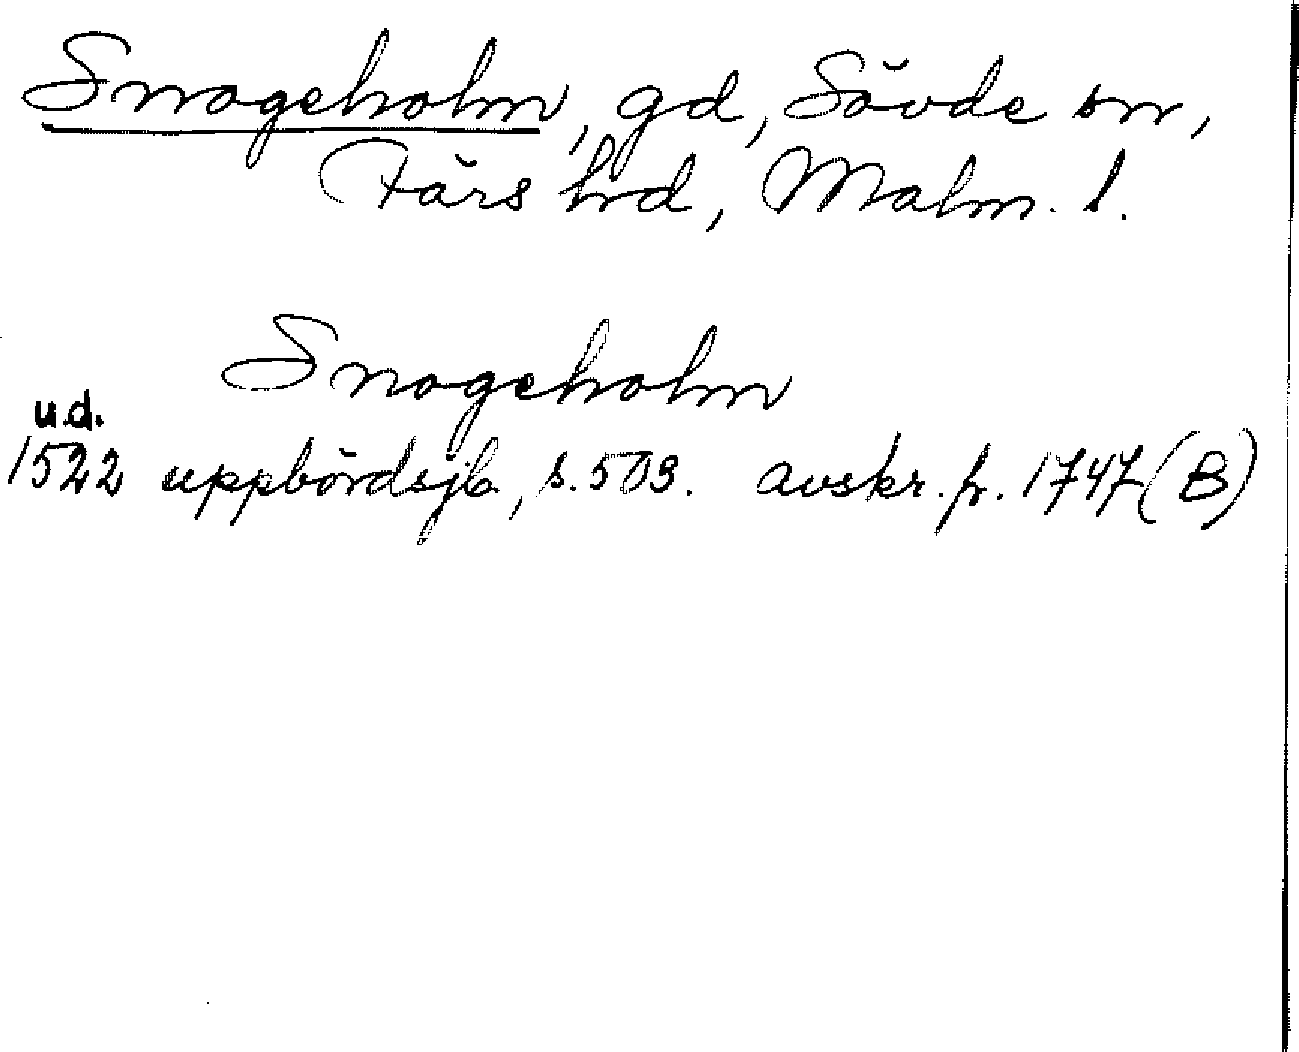 Snogeholm, gd, Sövde sn,
Färs hd, Malm. l.
Snogeholm
u.d.
1522 uppbördsjb, s. 503. avskr. fr. 1747 (B)